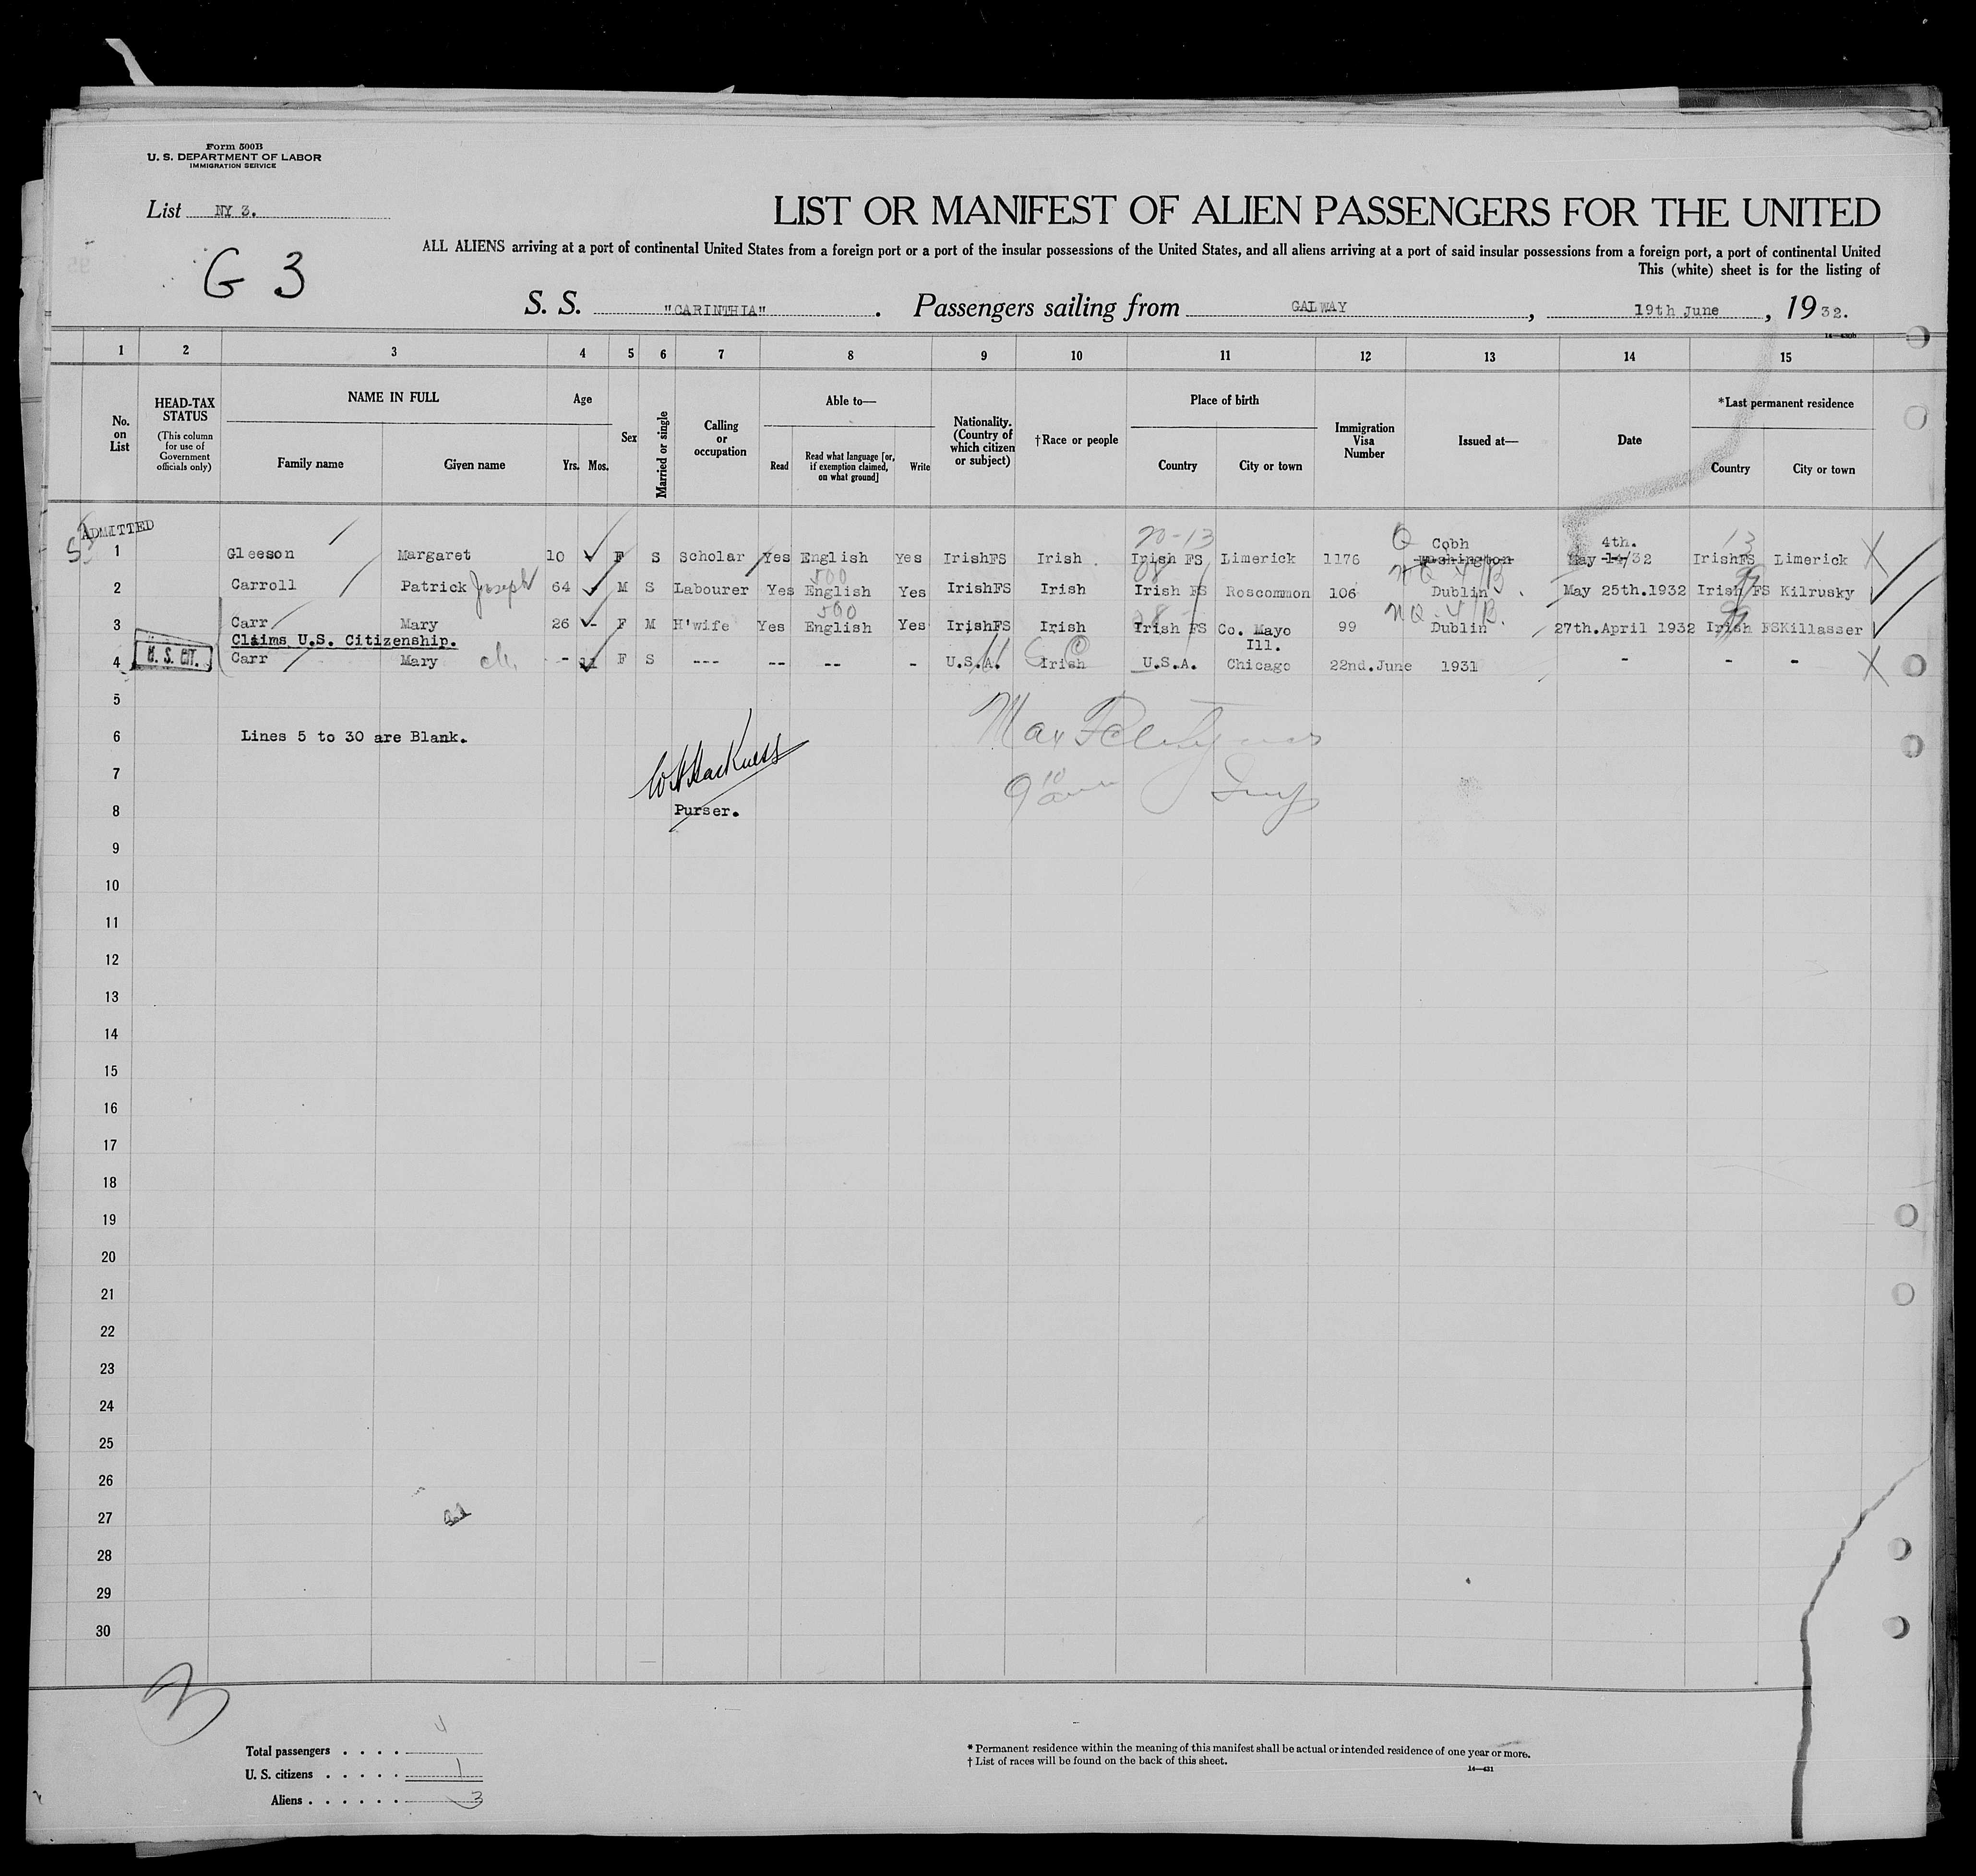 Form 500B
U. S. DEPARTMENT OF LABOR
IMMIGRATION SERVICE
List NY 3.
LIST OR MANIFEST OF ALIEN PASSENGERS FOR THE UNITED
G 3
ALL ALIENS arriving at a port of continental United States from a foreign port or a port of the insular possessions of the United States, and all aliens arriving at a port of said insular possessions from a foreign port, a port of continental United
This (white) sheet is for the listing of
S. S. "CARINTHIA". Passengers sailing from GALWAY, 19th June, 1932.
1 2 3 4 5 6 7 8 9 10 11 12 13 14 15
No. on List
HEAD-TAX STATUS
(This column for use of Government officials only)
NAME IN FULL
Family name Given name
Age
Yrs. Mos.
Sex
Married or single
Calling or occupation
Able to—
Read
Read what language [or, if exemption claimed, on what ground]
Write
Nationality. (Country of which citizen or subject)
†Race or people
Place of birth
Country City or town
Immigration Visa Number
Issued at—
Date
*Last permanent residence
Country City or town
ADMITTED
20-13 Q Cobh 4th. 13
1 Gleeson Margaret 10 F S Scholar Yes English Yes IrishFS Irish Irish FS Limerick 1176 Washington May 14/32 IrishFS Limerick X
500 08 NQ 4/B 99
2 Carroll Patrick Joseph 64 M S Labourer Yes English Yes IrishFS Irish Irish FS Roscommon 106 Dublin May 25th.1932 Irish FS Kilrusky
500 NQ 4/B.
3 Carr Mary 26 - F M H'wife Yes English Yes IrishFS Irish Irish FS Co. Mayo 99 Dublin 27th.April 1932 Irish FS Killasser
Claims U.S. Citizenship. Ill.
U. S. CIT.
4 Carr Mary ch. - 11 F S --- -- -- - U.S.A. Irish U.S.A. Chicago 22nd.June 1931 - - - X
5
6 Lines 5 to 30 are Blank.
7
8 Purser.
9
10
11
12
13
14
15
16
17
18
19
20
21
22
23
24
25
26
27
28
29
30
Total passengers . . . . 4
U. S. citizens . . . . . 1
Aliens . . . . . . 3
* Permanent residence within the meaning of this manifest shall be actual or intended residence of one year or more.
† List of races will be found on the back of this sheet.
14—431